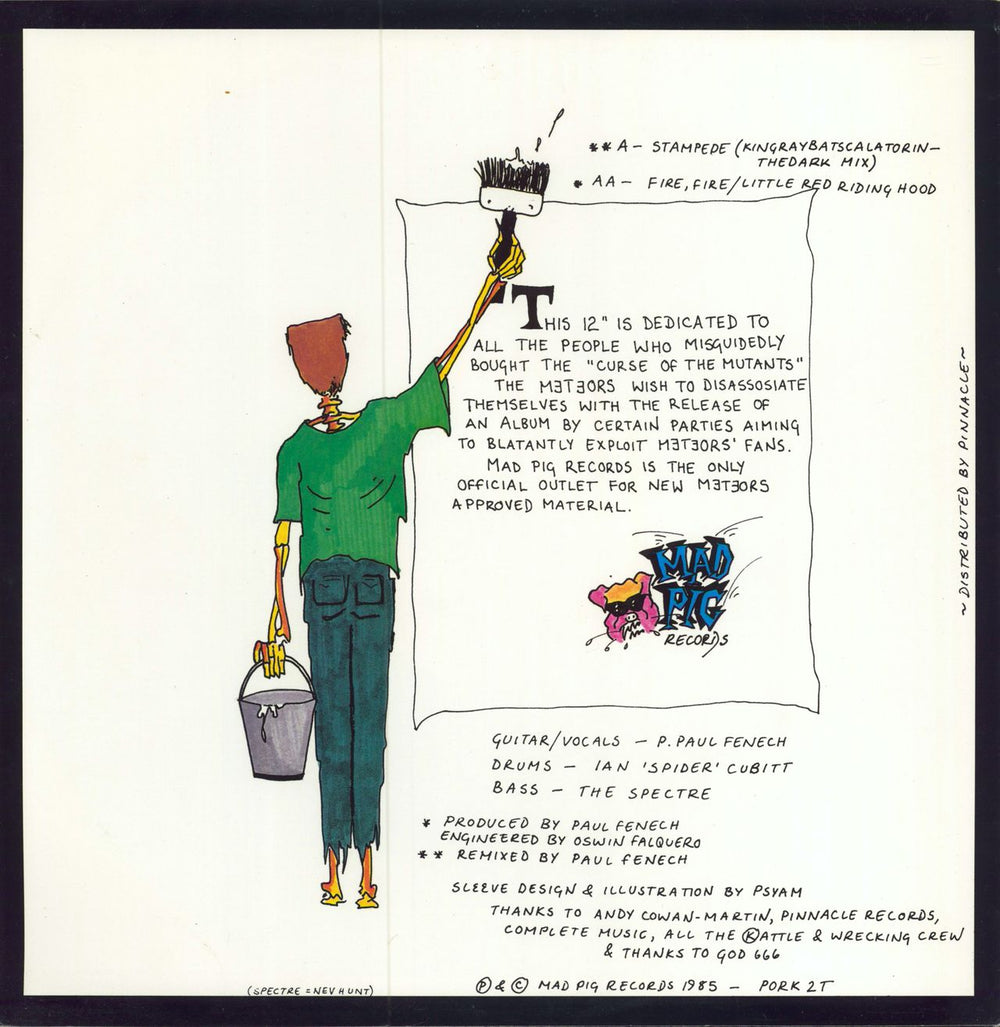 ** A – STAMPEDE (KINGRAYBATSCALATORIN–
THEDARK MIX)
* AA – FIRE, FIRE/LITTLE RED RIDING HOOD
"THIS 12" IS DEDICATED TO
ALL THE PEOPLE WHO MISGUIDEDLY
BOUGHT THE "CURSE OF THE MUTANTS"
THE METEORS WISH TO DISASSOSIATE
THEMSELVES WITH THE RELEASE OF
AN ALBUM BY CERTAIN PARTIES AIMING
TO BLATANTLY EXPLOIT METEORS' FANS.
MAD PIG RECORDS IS THE ONLY
OFFICIAL OUTLET FOR NEW METEORS
APPROVED MATERIAL.
MAD
PIG
RECORDS
~ DISTRIBUTED BY PINNACLE ~
GUITAR/VOCALS – P. PAUL FENECH
DRUMS – IAN 'SPIDER' CUBITT
BASS – THE SPECTRE
* PRODUCED BY PAUL FENECH
ENGINEERED BY OSWIN FALQUERO
** REMIXED BY PAUL FENECH
SLEEVE DESIGN & ILLUSTRATION BY PSYAM
THANKS TO ANDY COWAN-MARTIN, PINNACLE RECORDS,
COMPLETE MUSIC, ALL THE ⓀATTLE & WRECKING CREW
& THANKS TO GOD 666
(SPECTRE = NEV HUNT)
Ⓟ & © MAD PIG RECORDS 1985 – PORK 2T